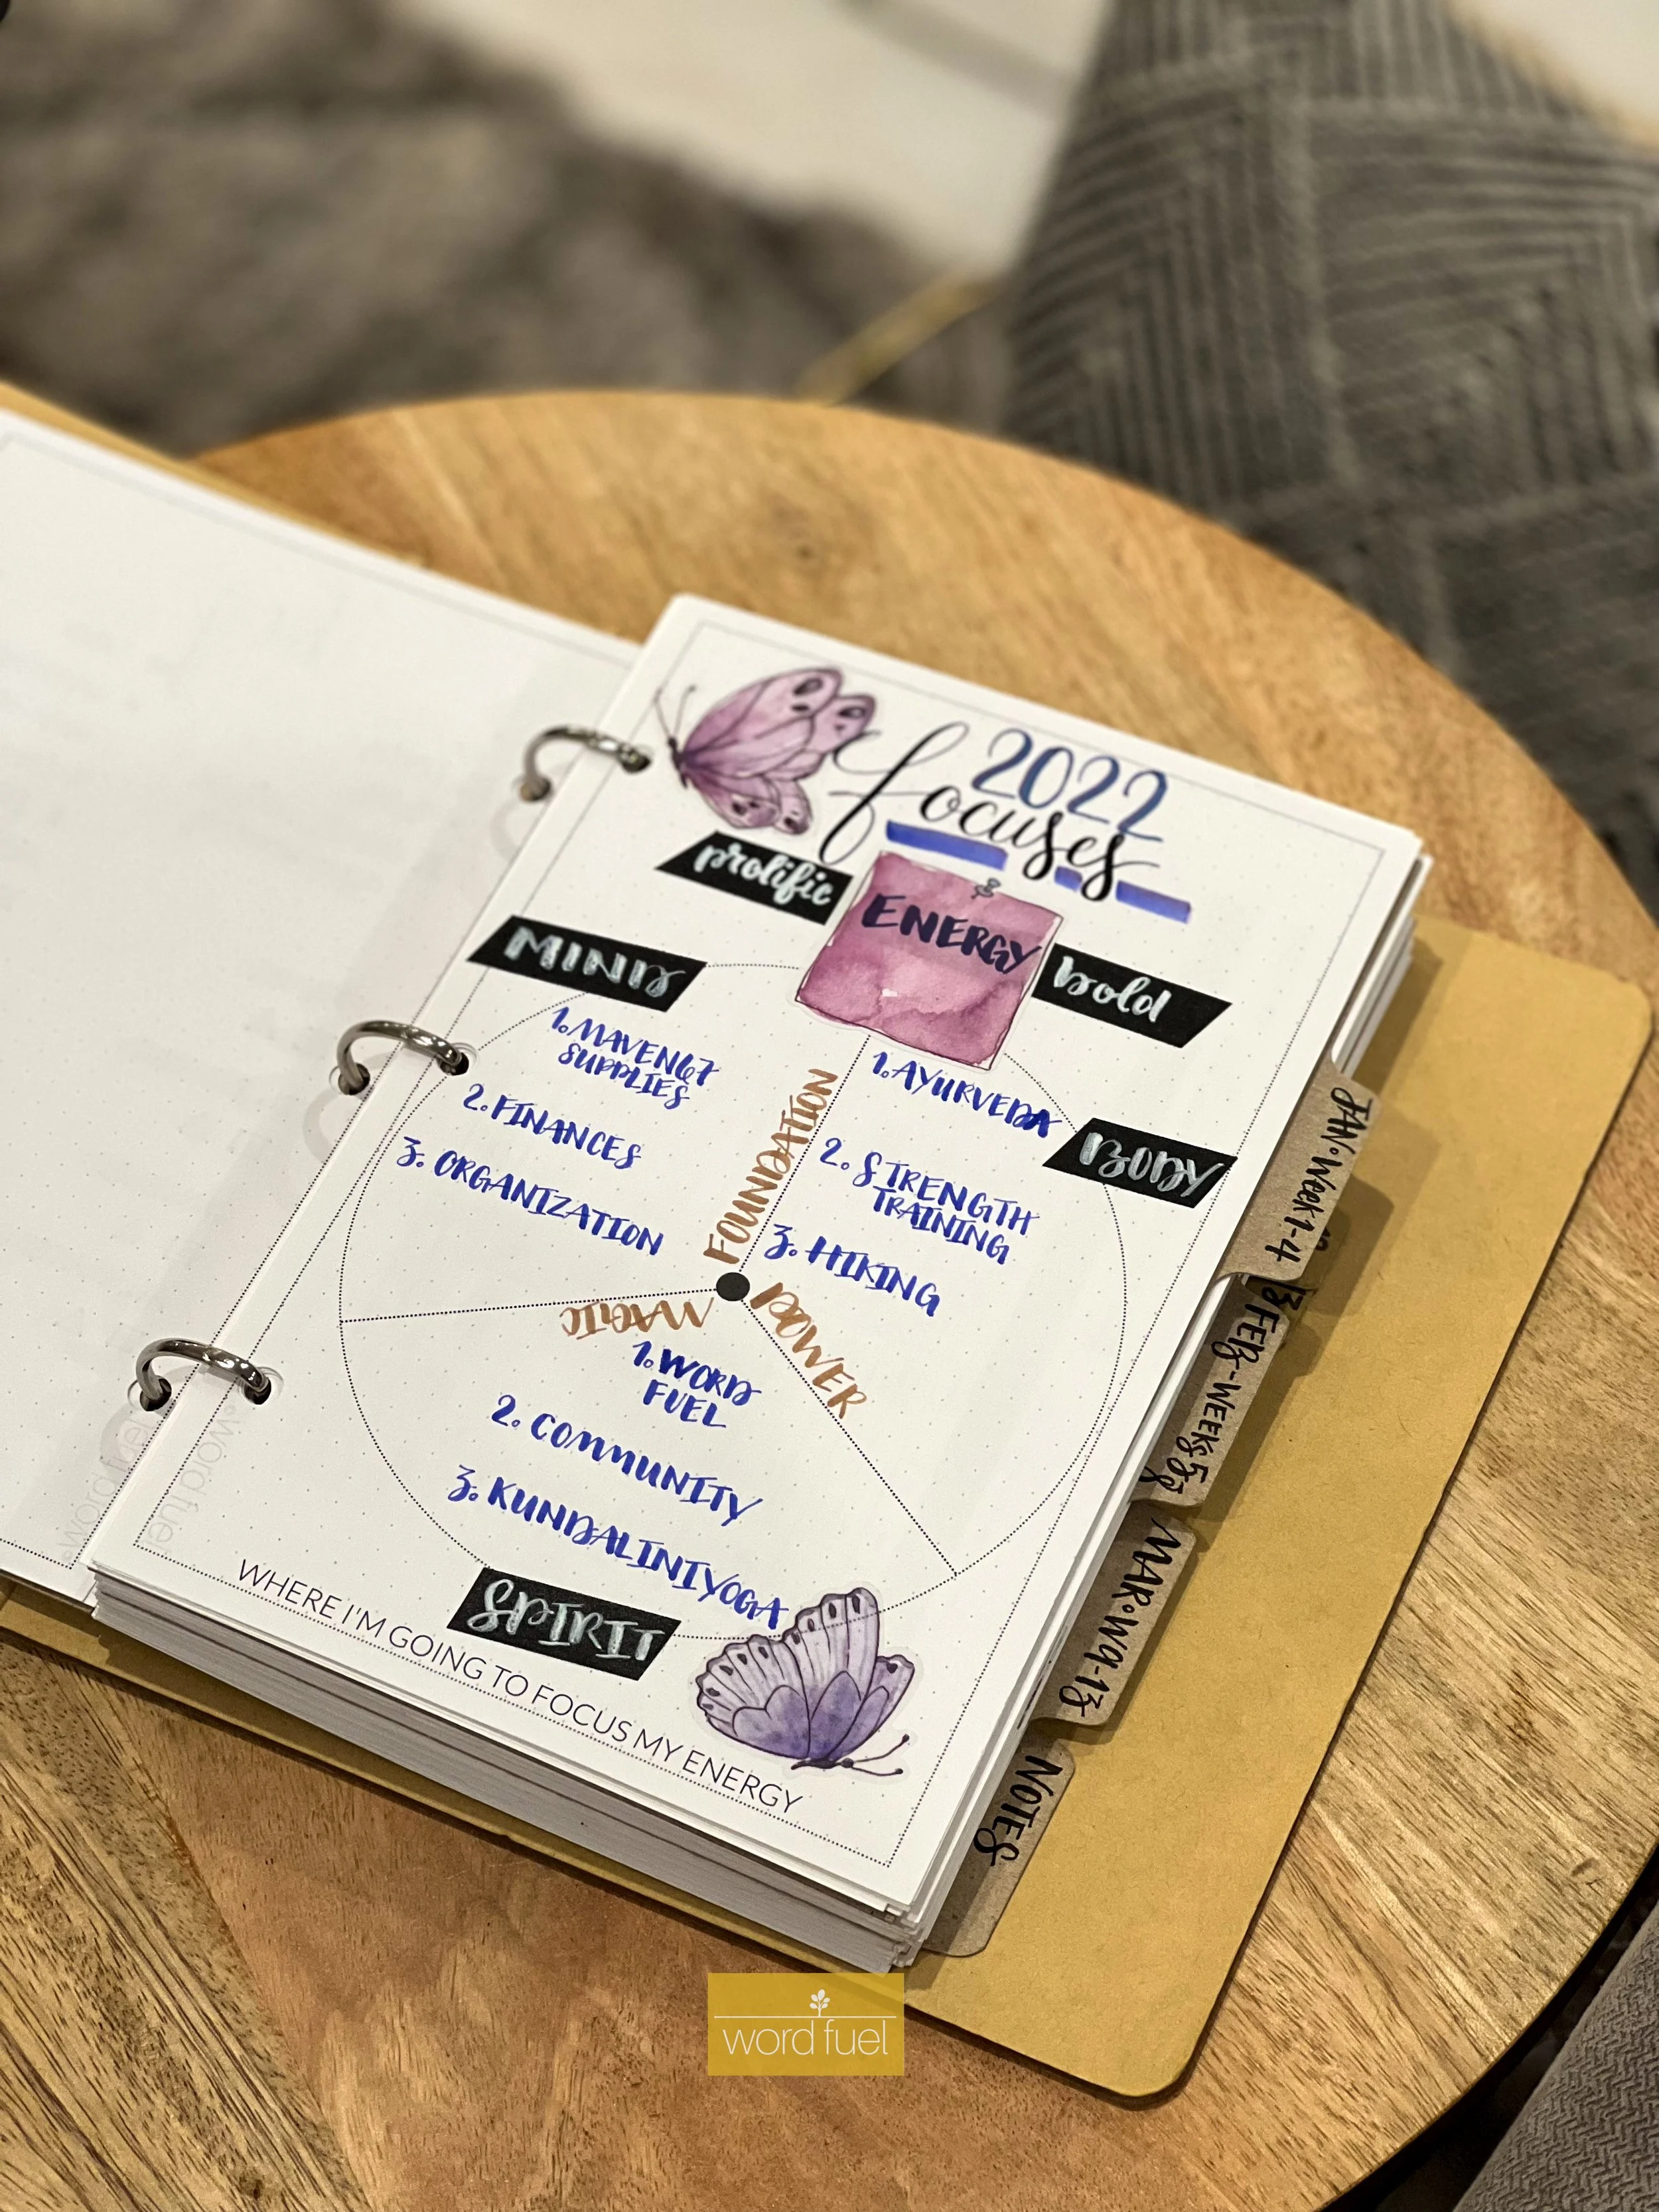 2022
focuses
prolific
ENERGY
bold
MIND
1. MAVEN67
SUPPLIES
2. FINANCES
3. ORGANIZATION
FOUNDATION
1. AYURVEDA
BODY
2. STRENGTH
TRAINING
3. HIKING
MAGIC
POWER
1. WORD
FUEL
2. COMMUNITY
3. KUNDALINI YOGA
SPIRIT
WHERE I'M GOING TO FOCUS MY ENERGY
JAN • Week 1-4
FEB - WEEKS 5-8
MAR • W9-13
NOTES
word fuel
word fuel